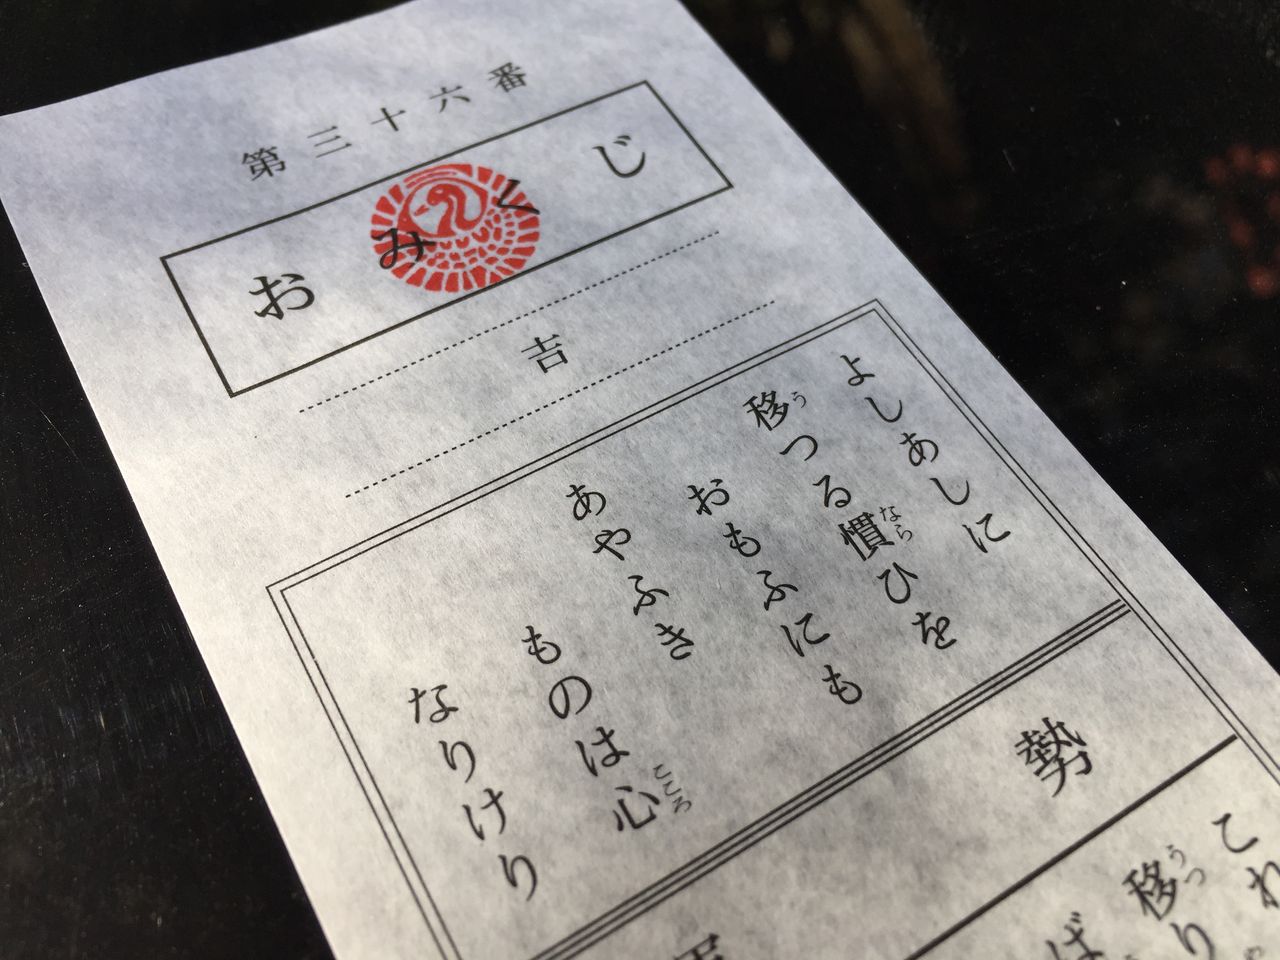 第三十六番
おみくじ
吉
よしあしに
移つる慣ひを
おもふにも
あやふき
ものは心
なりけり
勢
これ
移り
ば